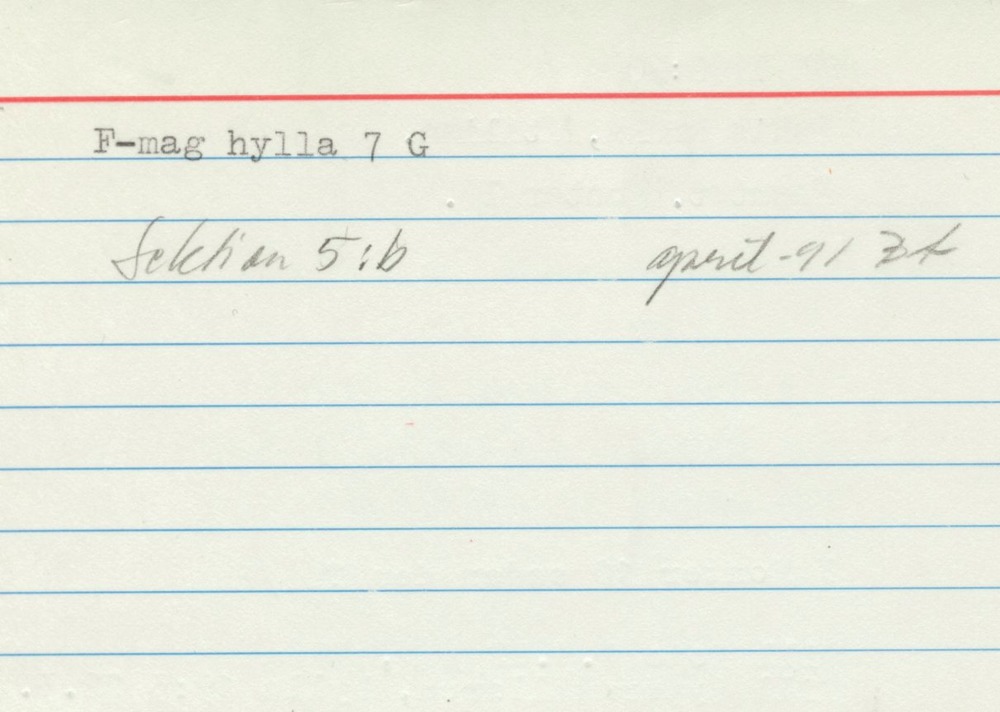 F-mag hylla 7 G
Sektion 5:b april -91